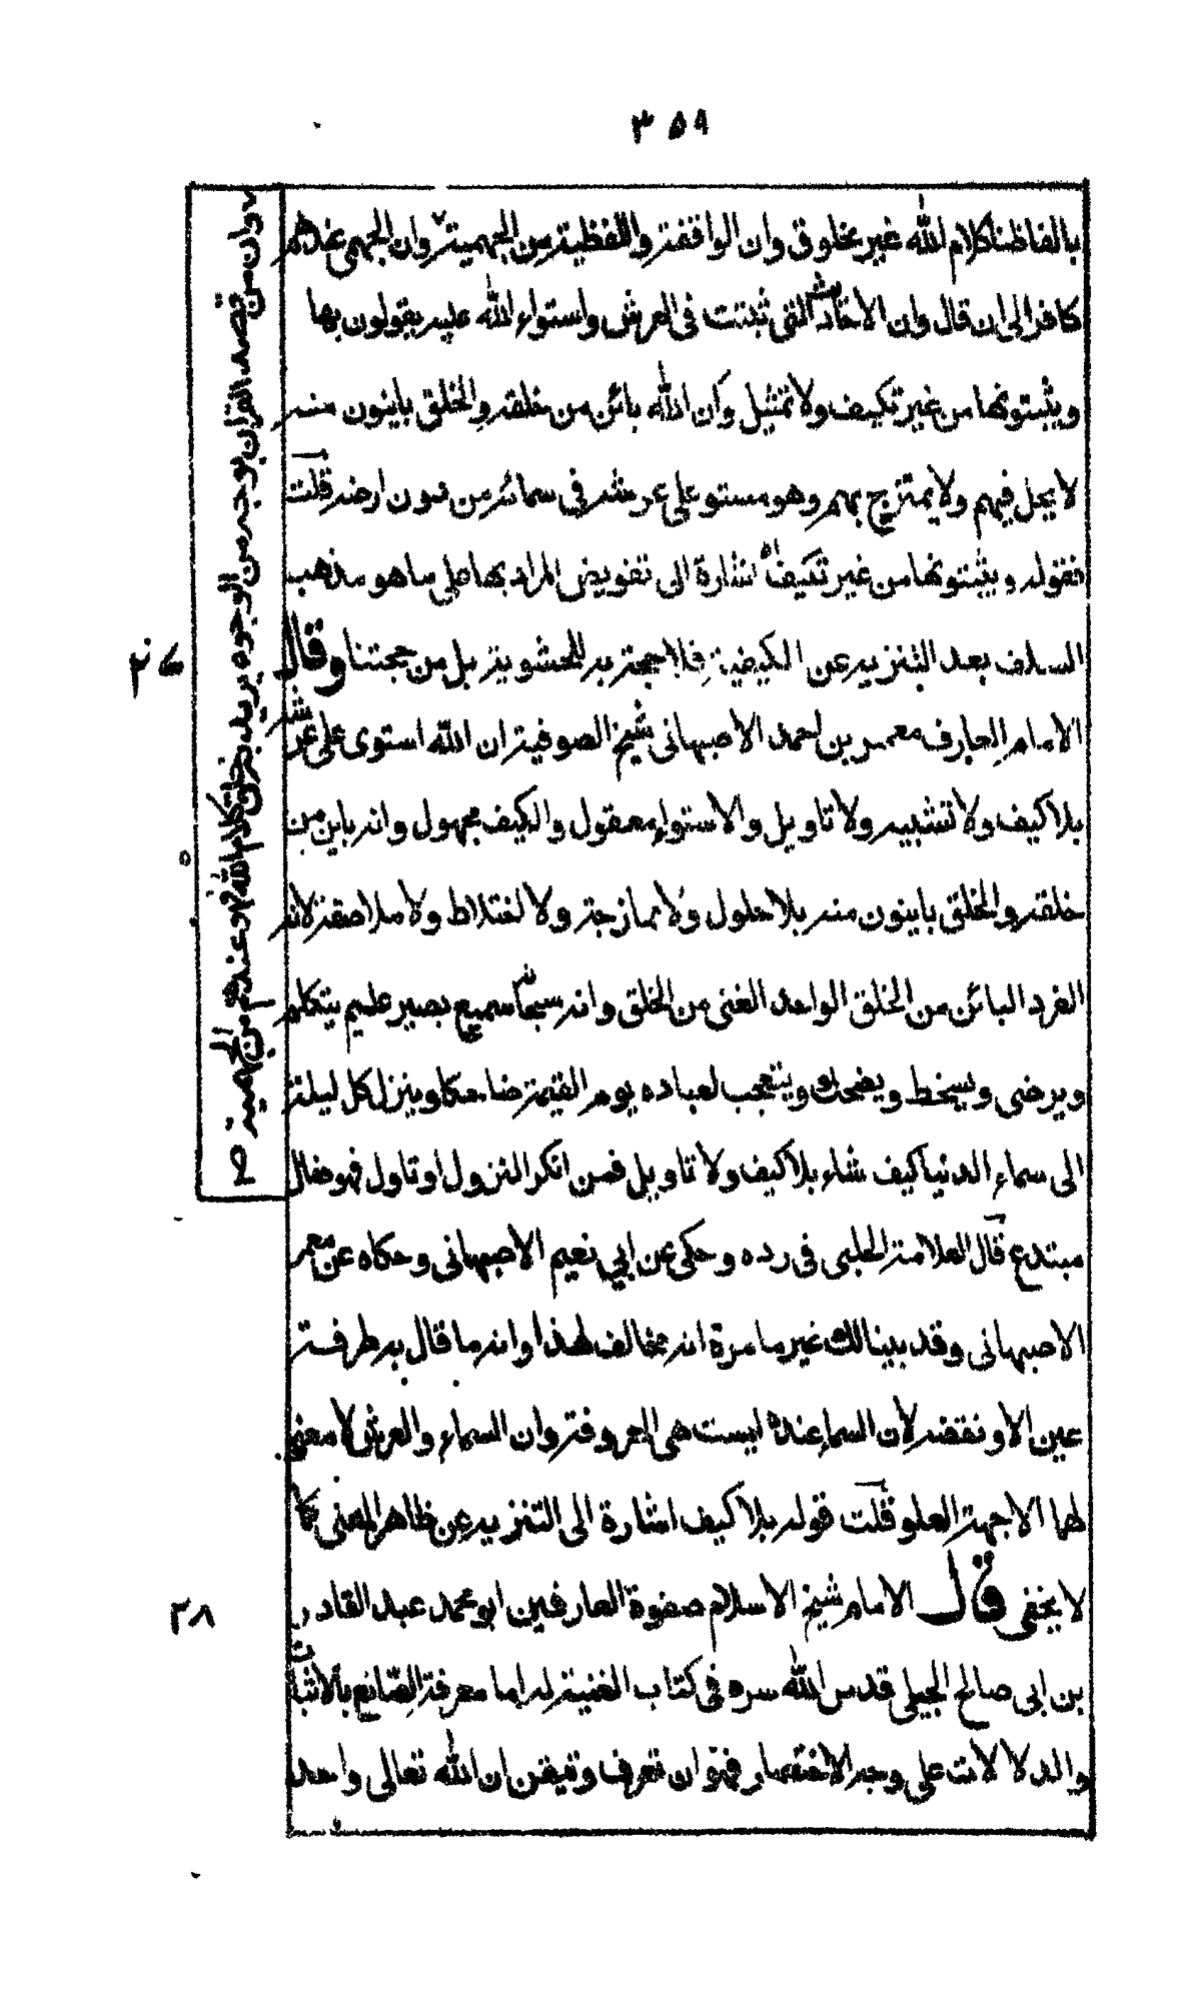 ٣٥٩
بالفاظنا كلام الله غير مخلوق وان الواقفة واللفظية من الجهمية وان الجهمي عندهم
كافر الى ان قال وان الاحاديث التى ثبتت فى العرش واستواء الله عليه يقولون بها
ويثبتونها من غير تكييف ولا تمثيل وان الله بائن من خلقه والخلق باينون منه
لا يحل فيهم ولا يمتزج بهم وهو مستو على عرشه فى سمائه من دون ارضه قلت
فقوله ويثبتونها من غير تكييف اشارة الى تفويض المراد بها على ما هو مذهب
السلف بعد التنزيه عن الكيفية فلا حجة به للحشوية بل من حجتنا وقال
الامام العارف معمر بن احمد الاصبهانى شيخ الصوفية ان الله استوى على عرشه
بلا كيف ولا تشبيه ولا تاويل والاستواء معقول والكيف مجهول وانه باين من
خلقه والخلق باينون منه بلا حلول ولا ممازجة ولا اختلاط ولا ملاصقة لانه
الفرد البائن من الخلق الواحد الغنى من الخلق وانه سبحانه سميع بصير عليم يتكلم
ويرضى ويسخط ويضحك ويتعجب لعباده يوم القيمة ضاحكا وينزل كل ليلة
الى سماء الدنيا كيف شاء بلا كيف ولا تاويل فمن انكر النزول او تاول فهو ضال
مبتدع قال العلامة الحلبى فى رده وحكى عن ابي نعيم الاصبهانى وحكاه عن معمر
الاصبهانى وقد بينا لك غير ما مرة انه مخالف لهذا وانه ما قال به طرفة
عين الا ونقضه لان السماء عنده ليست هى المعروفة وان السماء والعرش لا معنى
لهما الا جهة العلو قلت قوله بلا كيف اشارة الى التنزيه عن ظاهر المعنى كما
لا يخفى قال الامام شيخ الاسلام صفوة العارفين ابو محمد عبد القادر
بن ابى صالح الجيلى قدس الله سره فى كتاب الغنية له اما معرفة الصانع بالاثبات
والدلالات على وجه الاختصار فهو ان تعرف وتتيقن ان الله تعالى واحد
وان من قصد القران بوجه من الوجوه يريد به خلق كلام الله فهو عندهم من الجهمية ص
٢٧
٢٨